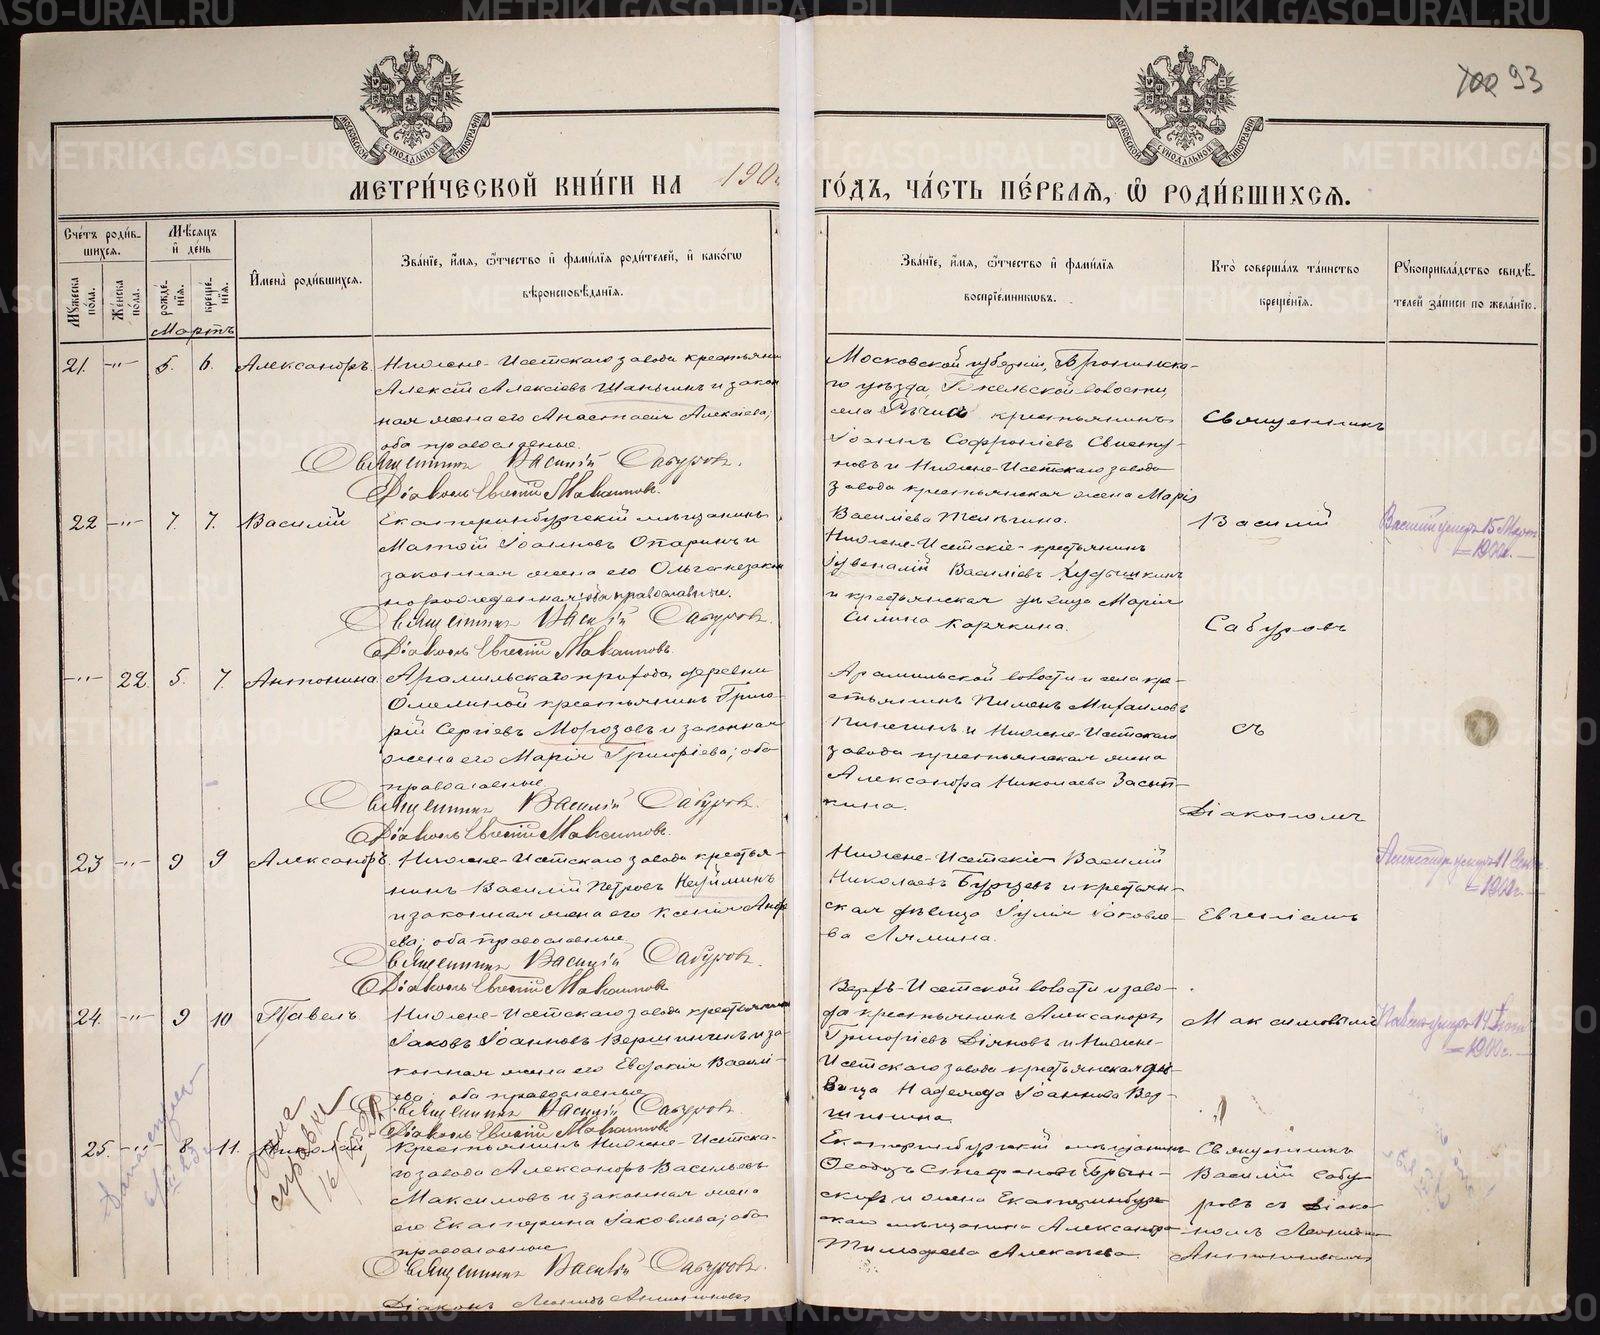 100 93
МОСКОВСКОЙ СѴНОДАЛЬНОЙ ТИПОГРАФІИ
МОСКОВСКОЙ СѴНОДАЛЬНОЙ ТИПОГРАФІИ
МЕТРИ́ЧЕСКОЙ КНИ́ГИ НА 190
ГО́ДЪ, ЧА́СТЬ ПЕ́РВАЯ, Ѡ РОДИ́ВШИХСЯ.
Сче́тъ роди́в-
шихся.
Му́жеска по́ла.
Же́нска по́ла.
Мѣ́сяцъ и де́нь
рожде́-нія.
креще́-нія.
Имена̀ роди́вшихся.
Зва́ніе, и́мя, ѻ́тчество и фами́лія роди́телей, и како́гѡ
вѣроисповѣ́данія.
Зва́ніе, и́мя, ѻ́тчество и фами́лія
воспріе́мниковъ.
Кто̀ соверша́лъ та́инство
креще́нія.
Рꙋкоприкла́дство свидѣ́-
телей за́писи по жела́нію.
Мартъ
21. -"- 5. 6. Александръ
Нижне-Исетскаго завода крестьянинъ
Алексій Алексіевъ Шаньгинъ и закон
ная жена его Анастасія Алексіева;
оба православные.
Священникъ Василій Сабуровъ.
Діаконъ Евгеній Максимовъ.
Московской губерніи, Бронницка-
го уѣзда, Гжельской волости,
села Рѣчицъ крестьянинъ
Іоаннъ Софроніевъ Свисту-
новъ и Нижне-Исетскаго завода
завода крестьянская жена Марія
Василіева
Священникъ
22 -"- 7. 7. Василій
Екатеринбургскій мѣщанинъ
Іоанновъ Опаринъ и
законная жена его Ольга незакон
норожденная; оба православные.
Священникъ Василій Сабуровъ.
Діаконъ Евгеній Максимовъ.
Нижне-Исетскіе крестьянинъ
Іувеналій Василіевъ
и крестьянская дѣвица Марія
Силина Корякина.
Василій
Сабуровъ
Василій умеръ 15 Марта
1900г.
-"- 22. 5. 7. Антонина
Арамильскаго прихода, деревни
крестьянинъ Григо-
рій Сергіевъ Морозовъ и законная
жена его Марія Григоріева; оба
православные
Священникъ Василій Сабуровъ.
Діаконъ Евгеній Максимовъ.
Арамильской волости и села кре-
стьянинъ Пименъ Михаиловъ
и Нижне-Исетскаго
завода крестьянская жена
Александра Николаева Засып-
кина.
съ
Діакономъ
23 -"- 9 9 Александръ
Нижне-Исетскаго завода крестья-
нинъ Василій Петровъ Неуйминъ
и законная жена его Ксенія
оба православные
Священникъ Василій Сабуровъ.
Діаконъ Евгеній Максимовъ
Нижне-Исетскіе Василій
Николаевъ Бурцевъ и крестьян-
ская дѣвица Іулія Іаковле-
ва Лямина.
Евгеніемъ
Александръ умеръ 11
24. -"- 9 10 Павелъ
Нижне-Исетскаго завода крестьянинъ
Іаковъ Іоанновъ Вершининъ и за-
конная жена его Евдокія Васил-
ева; оба православные
Священникъ Василій Сабуровъ.
Діаконъ Евгеній Максимовъ
Верхъ-Исетской волости и заво-
да крестьянинъ Александръ
Григоріевъ Діяновъ и Нижне-
Исетскаго завода крестьянская дѣ-
вица Надежда Іоаннова Вер-
шинина
Максимовымъ
Павелъ умеръ 14
1900г.
25. -"- 8 11. Николай
Крестьянинъ Нижне-Исетска-
го завода Александръ Васильевъ
Максимовъ и законная жена
его Екатерина Іаковлева; оба
православные
Священникъ Василій Сабуровъ.
Діаконъ Леонидъ
Екатеринбургскій мѣщанинъ
Ѳеодоръ Стефановъ
и жена Екатеринбург-
скаго мѣщанина Александра
Тимофеева Алексеева
Священникъ
Василій Сабу-
ровъ съ Діако-
номъ Леонидомъ
справки
METRIKI.GASO-URAL.RU